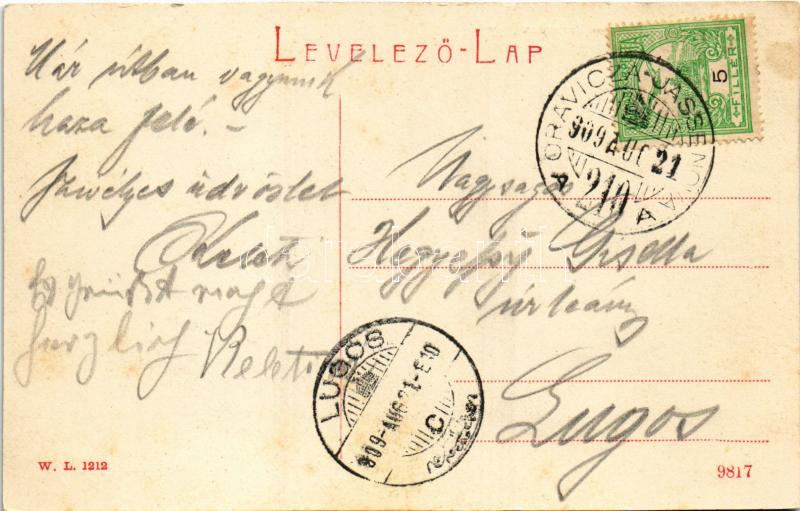 LEVELEZŐ-LAP
Már útban vagyunk
haza felé. –
Szívélyes üdvözlet
Es grüsst
herzlich
5
FILLÉR
ORAVICZA-JASSENOVA
909 AUG 21
210
A A
Nagyságos
Hegyessy Gisella
úrleány
Lugos
LUGOS
909-AUG 21-
C
darabanth
W. L. 1212
9817